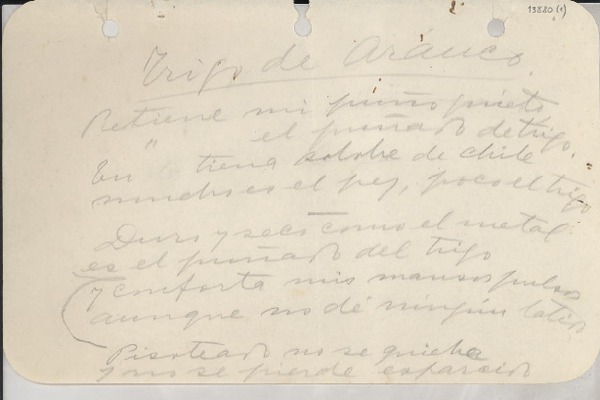 13880 (1)
Trigo de Arauco
Retiene mi puño prieto
" el puñado de trigo.
En tierra salobre de Chile
mucho es el pez, poco el trigo
Duro y seco como el metal
es el puñado del trigo
y conforta mis mansos pulsos
aunque no dé ningún latido
Pisoteado no se quiebra
y no se pierde esparcido